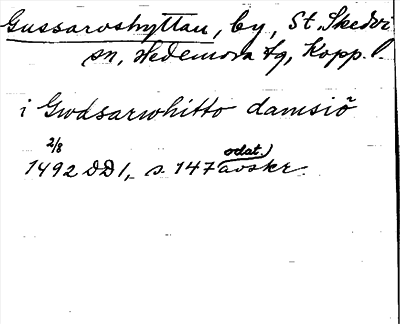 Gussarvshyttan, by, St Skedvi
sn, Hedemora tg, Kopp. l.
i Gwdsarwhitto damsiö
2/8
odat.)
1492 DD 1, s. 147 avskr.